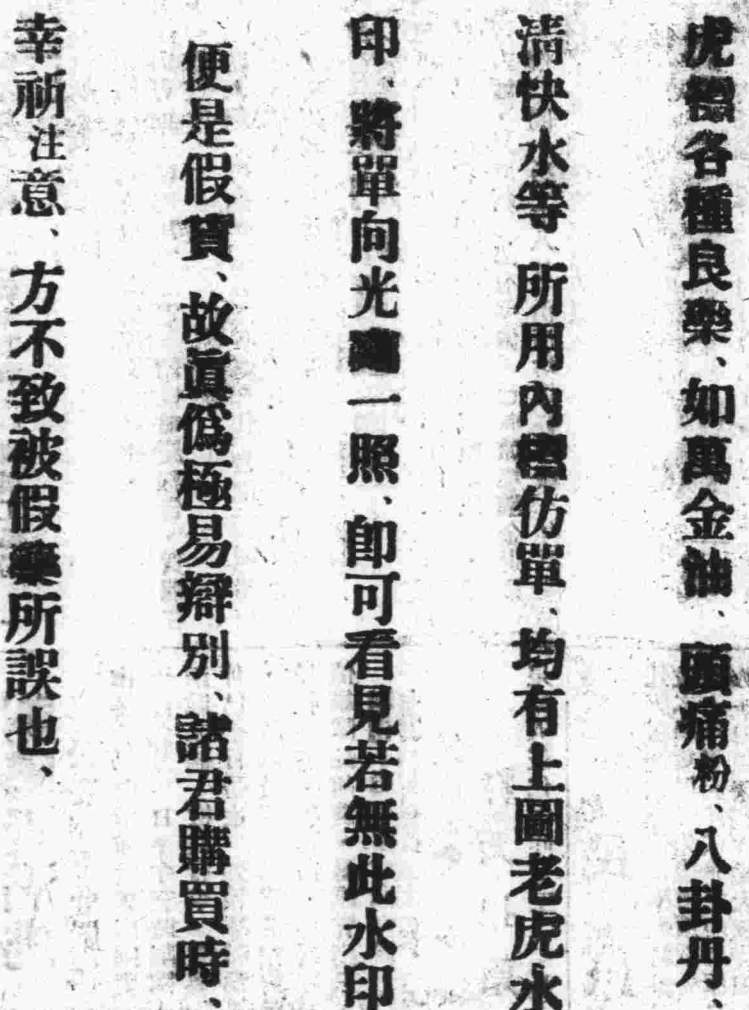 虎標各種良藥、如萬金油、頭痛粉、八卦丹、
清快水等、所用內標仿單、均有上圖老虎水
印、將單向光處一照、卽可看見若無此水印
便是假貨、故眞僞極易辯別、諸君購買時、
幸祈注意、方不致被假藥所誤也、